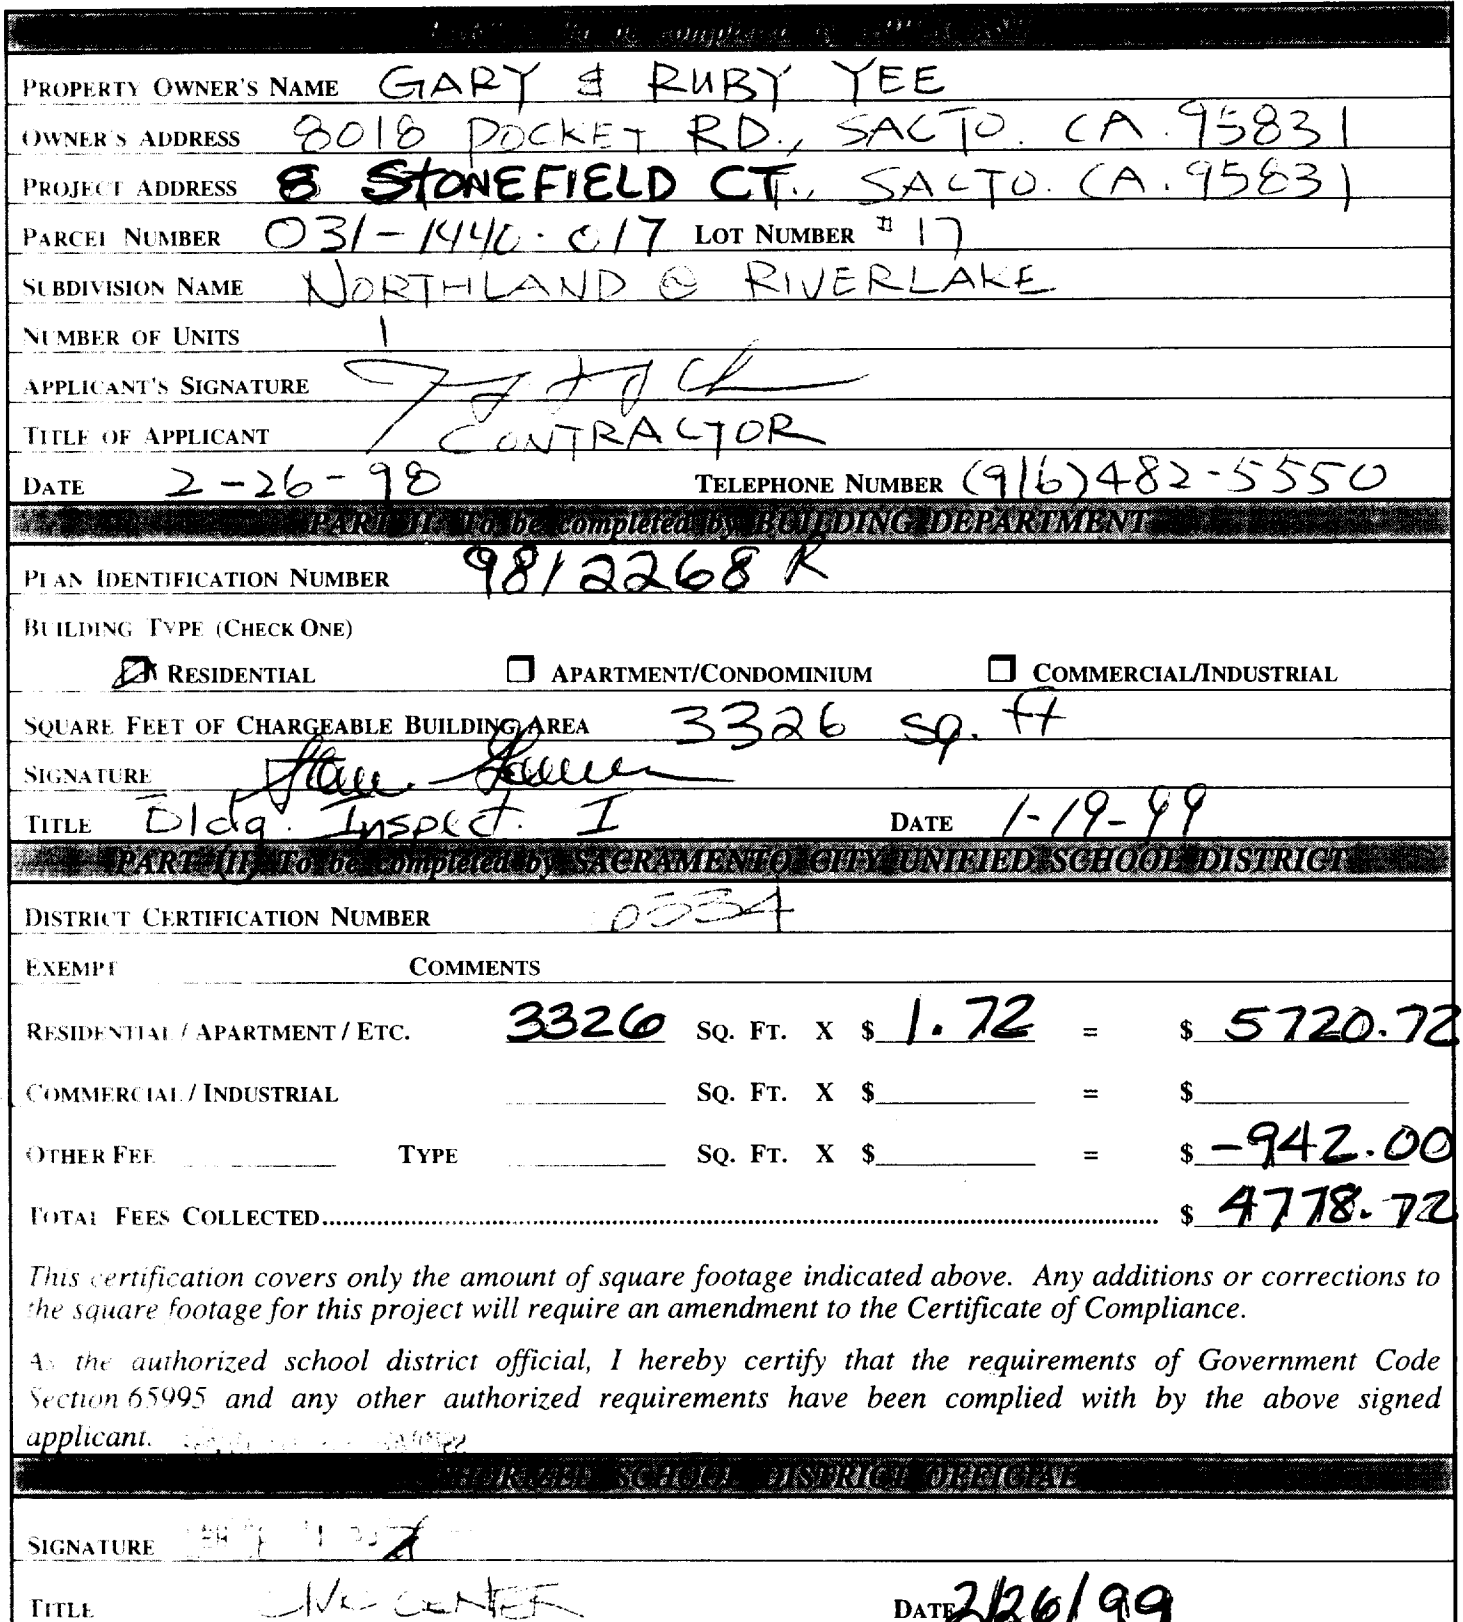 to be completed by
PROPERTY OWNER'S NAME GARY & RUBY YEE
OWNER'S ADDRESS 8018 POCKET RD., SACTO. CA. 95831
PROJECT ADDRESS 8 STONEFIELD CT., SACTO. CA. 95831
PARCEL NUMBER 031-1440-017 LOT NUMBER # 17
SUBDIVISION NAME NORTHLAND @ RIVERLAKE
NUMBER OF UNITS 1
APPLICANT'S SIGNATURE
TITLE OF APPLICANT CONTRACTOR
DATE 2-26-98 TELEPHONE NUMBER (916) 482-5550
PART II To be completed by BUILDING DEPARTMENT
PLAN IDENTIFICATION NUMBER 9812268 R
BUILDING TYPE (CHECK ONE)
RESIDENTIAL APARTMENT/CONDOMINIUM COMMERCIAL/INDUSTRIAL
SQUARE FEET OF CHARGEABLE BUILDING AREA 3326 sq. ft
SIGNATURE
TITLE Bldg. Inspect. I DATE 1-19-99
PART III To be completed by SACRAMENTO CITY UNIFIED SCHOOL DISTRICT
DISTRICT CERTIFICATION NUMBER 0534
EXEMPT COMMENTS
RESIDENTIAL / APARTMENT / ETC. 3326 SQ. FT. X $ 1.72 = $ 5720.72
COMMERCIAL / INDUSTRIAL SQ. FT. X $ = $
OTHER FEE TYPE SQ. FT. X $ = $ -942.00
TOTAL FEES COLLECTED $ 4778.72
This certification covers only the amount of square footage indicated above. Any additions or corrections to
the square footage for this project will require an amendment to the Certificate of Compliance.
As the authorized school district official, I hereby certify that the requirements of Government Code
Section 65995 and any other authorized requirements have been complied with by the above signed
applicant.
AUTHORIZED SCHOOL DISTRICT OFFICIAL
SIGNATURE
TITLE CENTER DATE 2/26/99